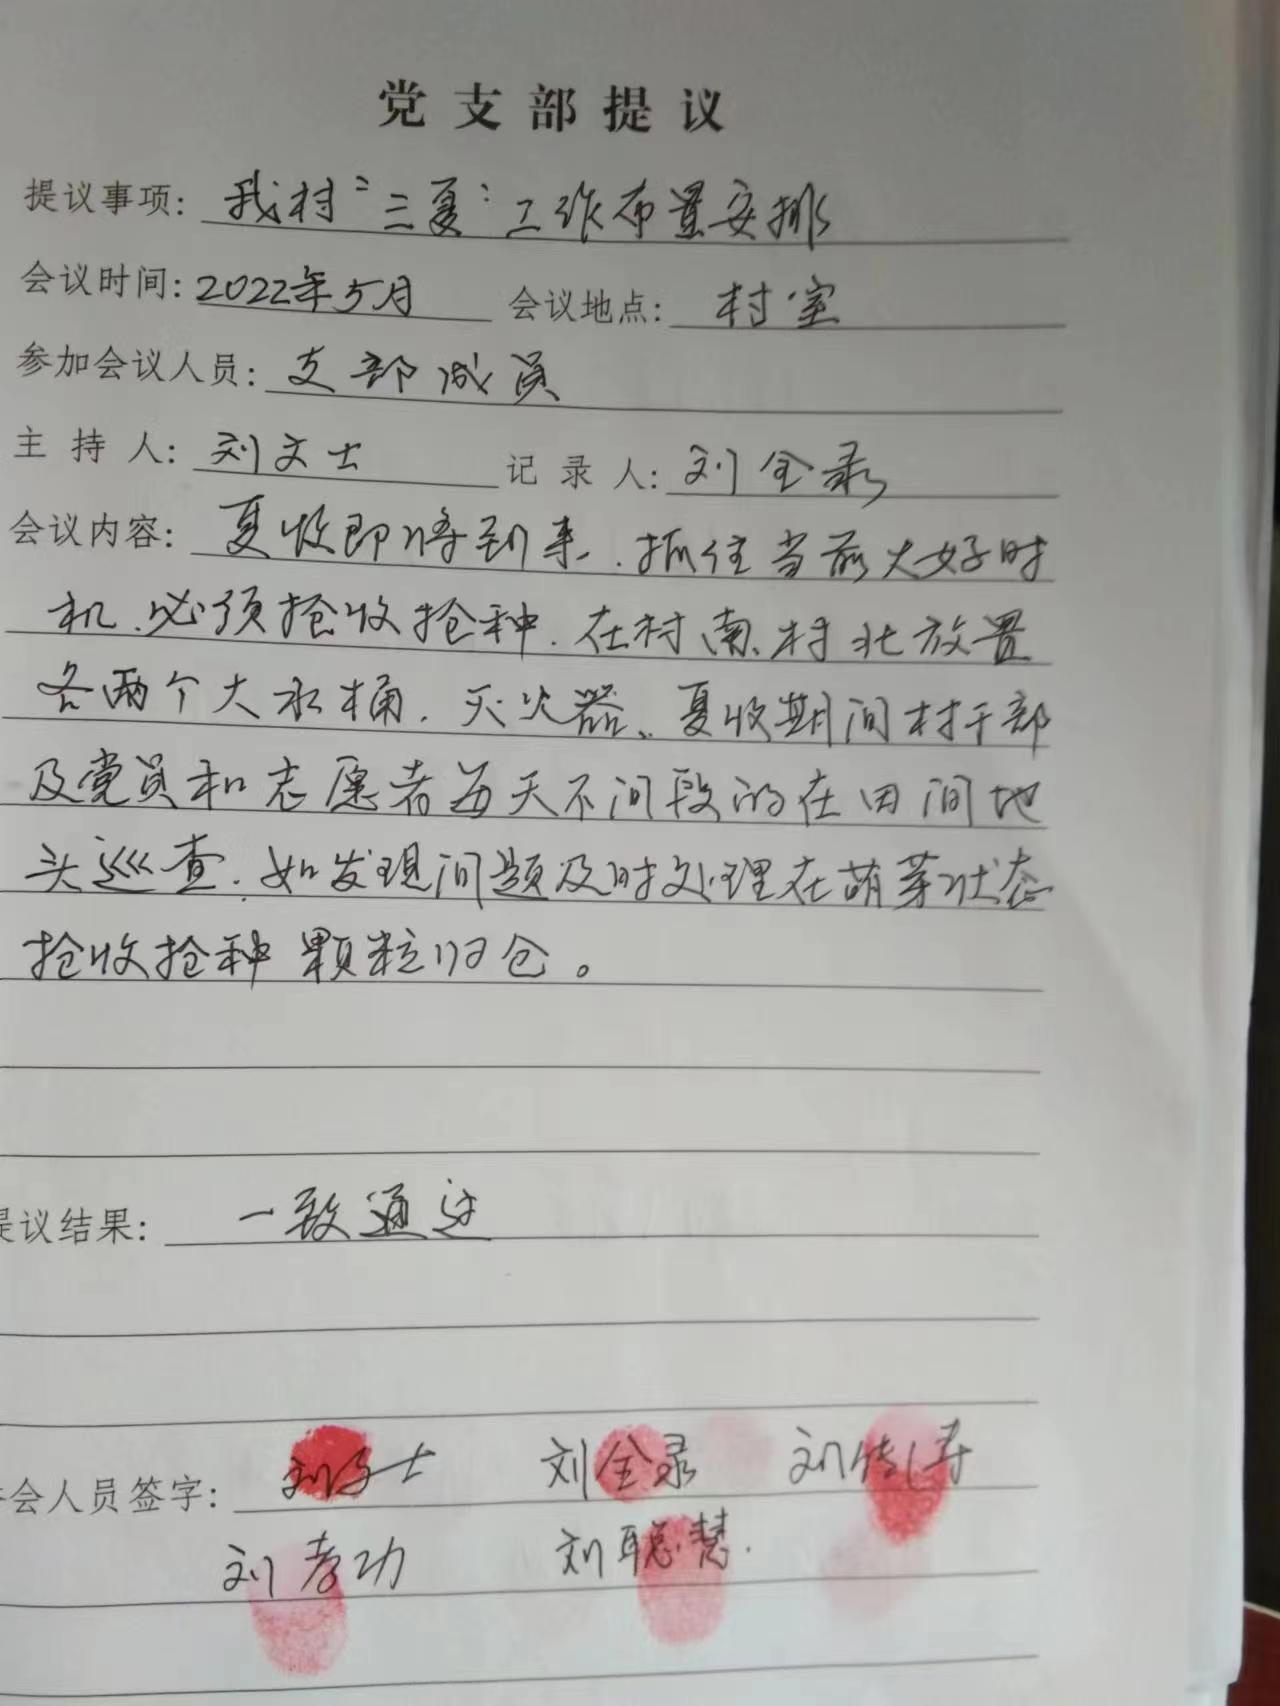 党支部提议
提议事项: 我村“三夏”工作布置安排
会议时间: 2022年5月 会议地点: 村室
参加会议人员: 支部成员
主持人: 刘文士 记录人: 刘全录
会议内容: 夏收即将到来.抓住当前大好时
机.必须抢收抢种.在村南、村北放置
各两个大水桶.灭火器、夏收期间村干部
及党员和志愿者每天不间段的在田间地
头巡查.如发现问题及时处理在萌芽状态
抢收抢种 颗粒归仓。
提议结果: 一致通过
会人员签字: 刘文士 刘全录 刘传涛
刘孝功 刘聪慧.